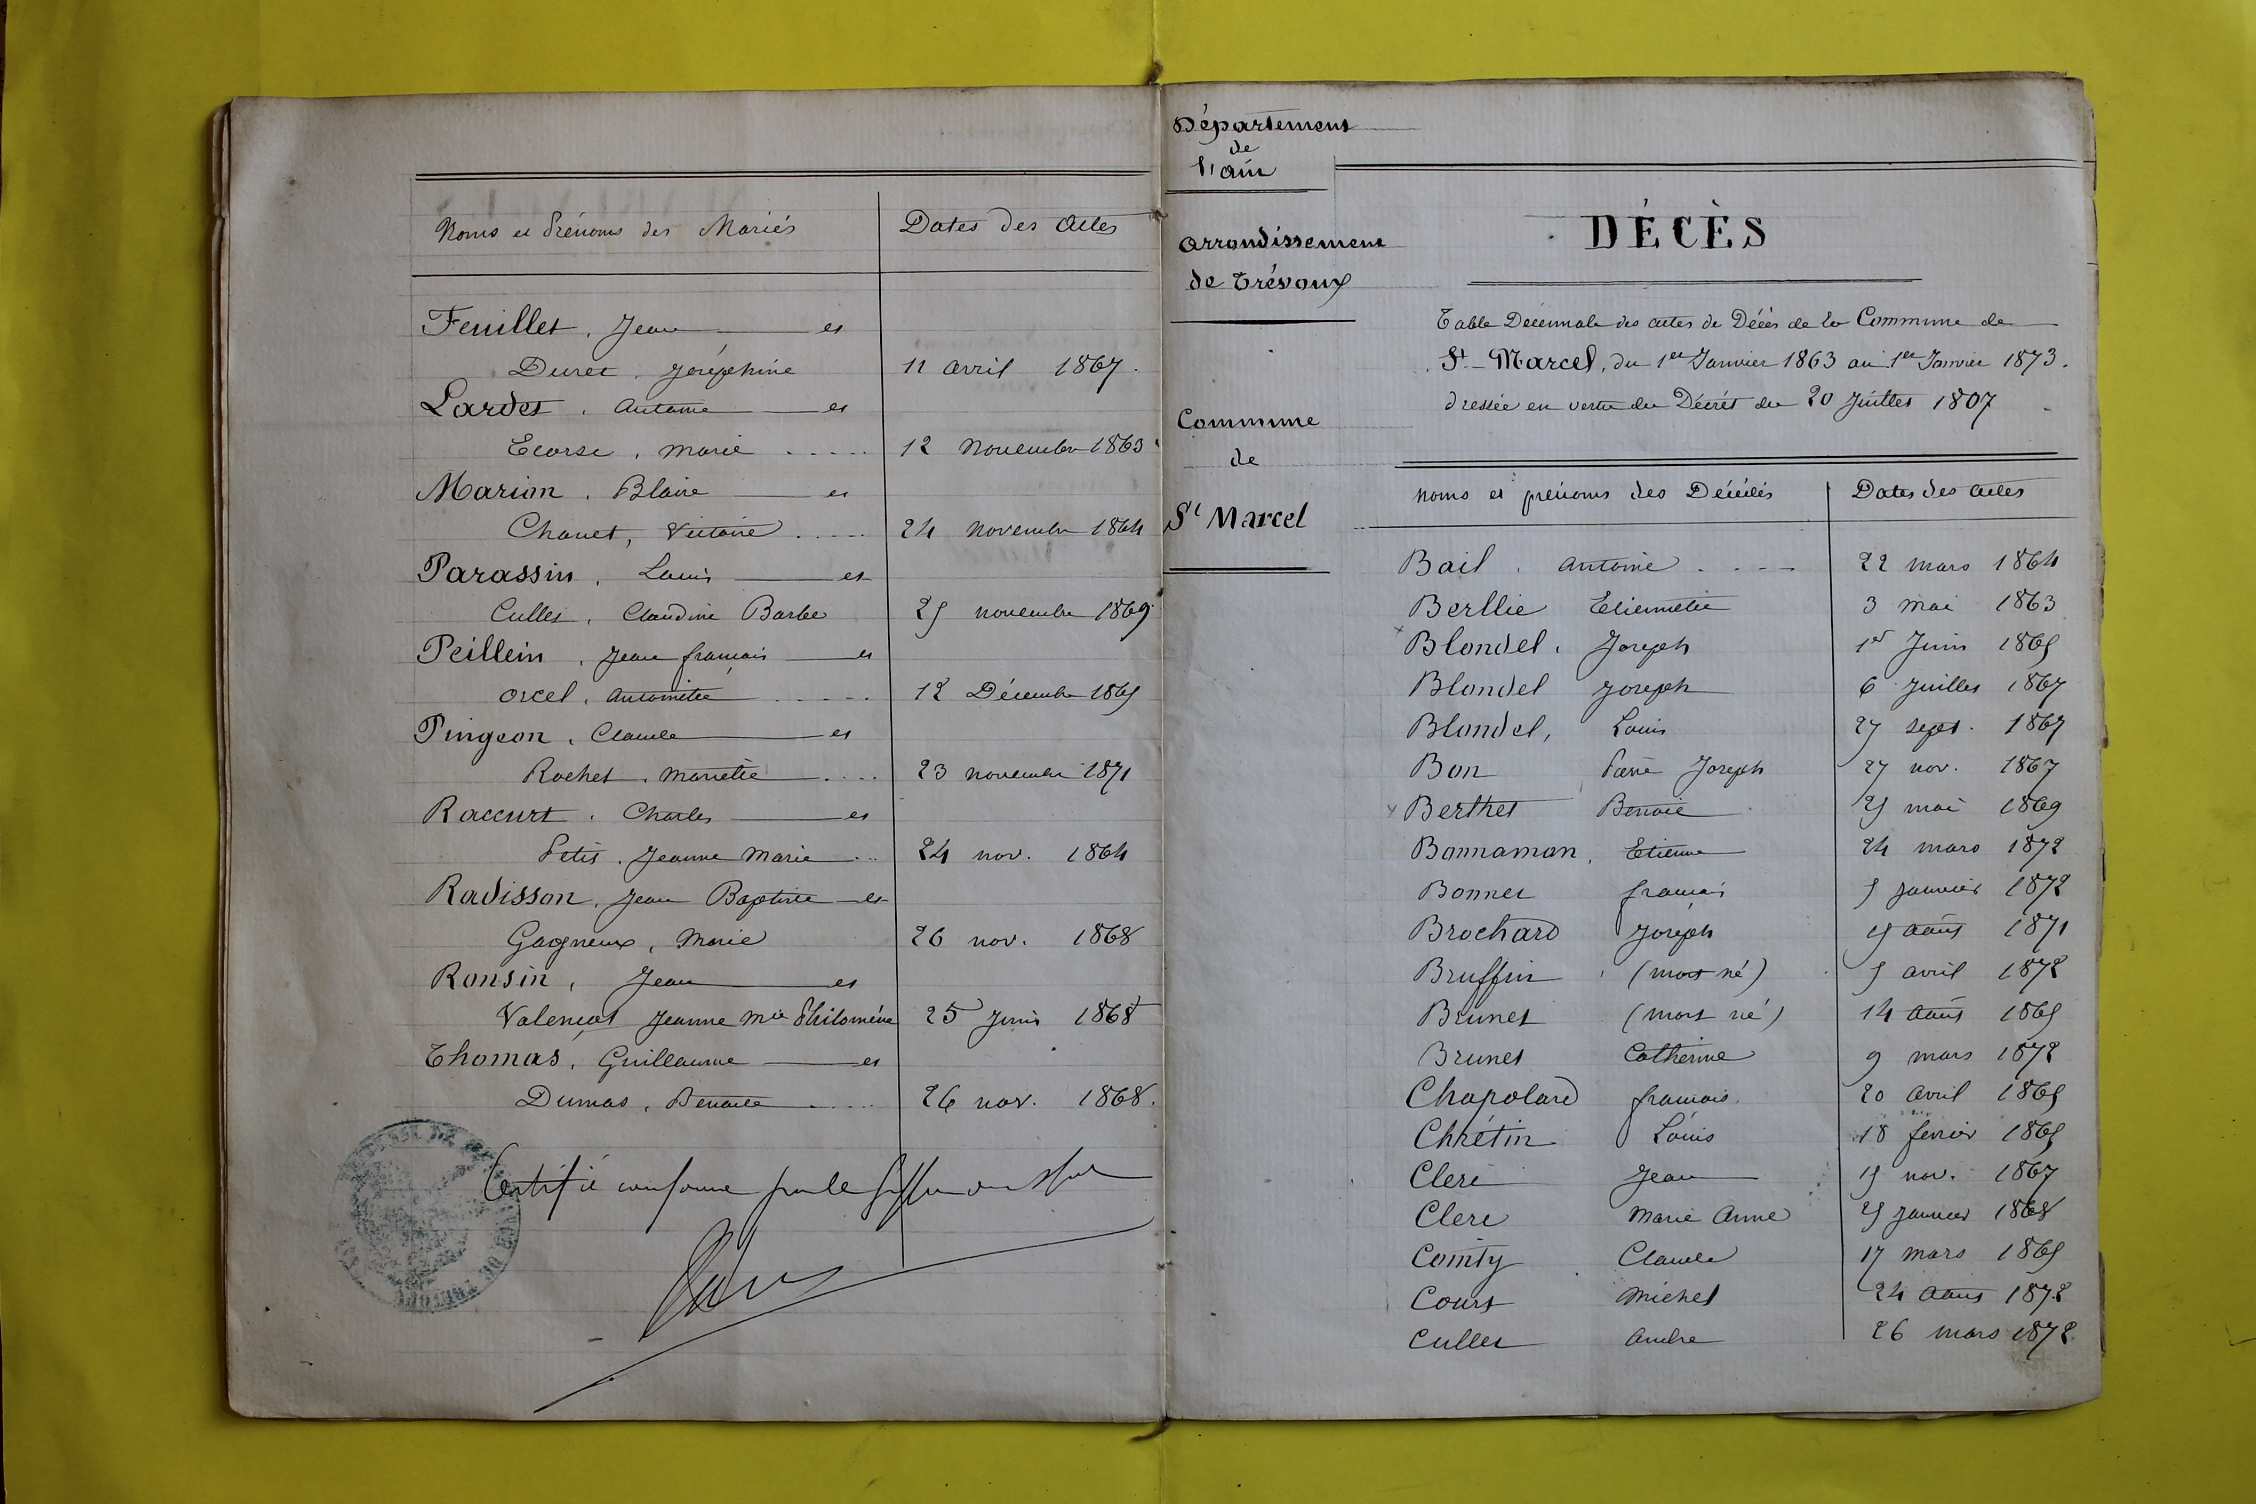 Noms et Prénoms des Mariés
Dates des Actes
Feuillet, Jean et
Duret, Joséphine 11 avril 1867.
Lardet, Antoine et
Ecorse, Marie ..... 12 Novembre 1863
Marion, Blaise et
Chanet, Victoire ..... 24 Novembre 1864
Parassin, Louis et
Cullet, Claudine Barbe 25 novembre 1869
Peillein, Jean français et
Orcel, Antoinette ..... 12 Décembre 1865
Pingeon, Claude et
Rochet, Mariette .... 23 novembre 1871
Raccurt, Charles et
Petit, Jeanne Marie ... 24 nov. 1864
Radisson, Jean Baptiste et
Gagneux, Marie 26 nov. 1868
Ronsin, Jean et
Valençot Jeanne Mie Philomène 25 Juin 1868
Thomas, Guillaume et
Dumas, Benoite ..... 26 nov. 1868.
Certifié conforme par le
Département
de
l'ain
Arrondissement
de Trévoux
Commune
de
St Marcel
DÉCÈS
Table Décennale des actes de Décès de la Commune de
St-Marcel, du 1er Janvier 1863 au 1er Janvier 1873.
dressée en vertu du Décrét du 20 Juillet 1807
Noms et prénoms des Décédés Dates des Actes
Bail, Antoine .... 22 mars 1864
Berllie Etiennette 3 mai 1863
Blondel, Joseph 1er Juin 1865
Blondel Joseph 6 Juillet 1867
Blondel, Louis 27 sept. 1867
Bon Pierre Joseph 27 nov. 1867
Berthet Benoit 25 mai 1869
Bonnaman, Etienne 24 mars 1872
Bonnet français 5 janvier 1872
Brochard Joseph 15 Août 1871
Bruffin (mort né) 5 avril 1872
Brunet (mort né) 14 Août 1865
Brunet Catherine 9 mars 1872
Chapolard français 20 avril 1865
Chrétin Louis 18 février 1865
Clerc Jean 15 nov. 1867
Clerc Marie Anne 25 janvier 1868
Cointy Claude 17 mars 1865
Court Michel 24 Août 1872
Cullet André 26 mars 1872